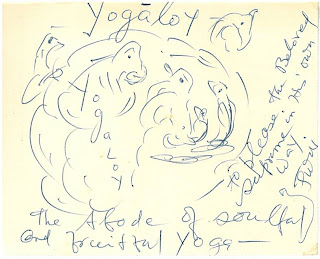 Yogaloy —
Yogaloy
— to please the Beloved
Supreme in His own
Way.
The Abode of soulful
and fruitful Yoga —